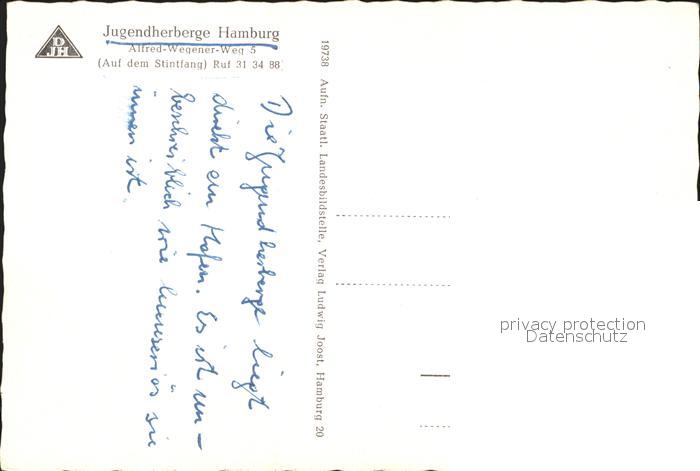 DJH
Jugendherberge Hamburg
Alfred-Wegener-Weg 5
(Auf dem Stintfang) Ruf 31 34 88
Die Jugendherberge liegt
direkt am Hafen. Es ist un-
beschreiblich wie luxuriös sie
innen ist.
19738 Aufn. Staatl. Landesbildstelle, Verlag Ludwig Joost, Hamburg 20
privacy protection
Datenschutz